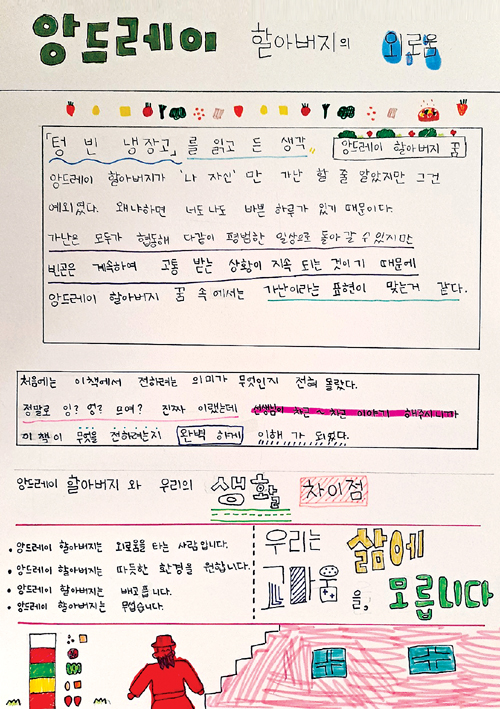 앙드레이 할아버지의 외로움
「텅 빈 냉장고」를 읽고 든 생각
앙드레이 할아버지 꿈
앙드레이 할아버지가 '나 자신'만 가난 할 줄 알았지만 그건
예외였다. 왜냐하면 너도나도 바쁜 하루가 있기 때문이다.
가난은 모두가 협동해 다같이 평범한 일상으로 돌아갈 수 있지만
빈곤은 계속하여 고통 받는 상황이 지속 되는 것이기 때문에
앙드레이 할아버지 꿈 속에서는 가난이라는 표현이 맞는거 같다.
처음에는 이책에서 전하려는 의미가 무엇인지 전혀 몰랐다.
정말로 잉? 엥? 므여? 진짜 이랬는데 선생님이 차근~차근 이야기 해주시니까
이 책이 무엇을 전하려는지 완벽 하게 이해 가 되었다.
앙드레이 할아버지 와 우리의 생활 차이점
• 앙드레이 할아버지는 외로움을 타는 사람입니다.
• 앙드레이 할아버지는 따듯한 환경을 원합니다.
• 앙드레이 할아버지는 배고픕니다.
• 앙드레이 할아버지는 무섭습니다.
우리는 삶에
고마움을,
모릅니다